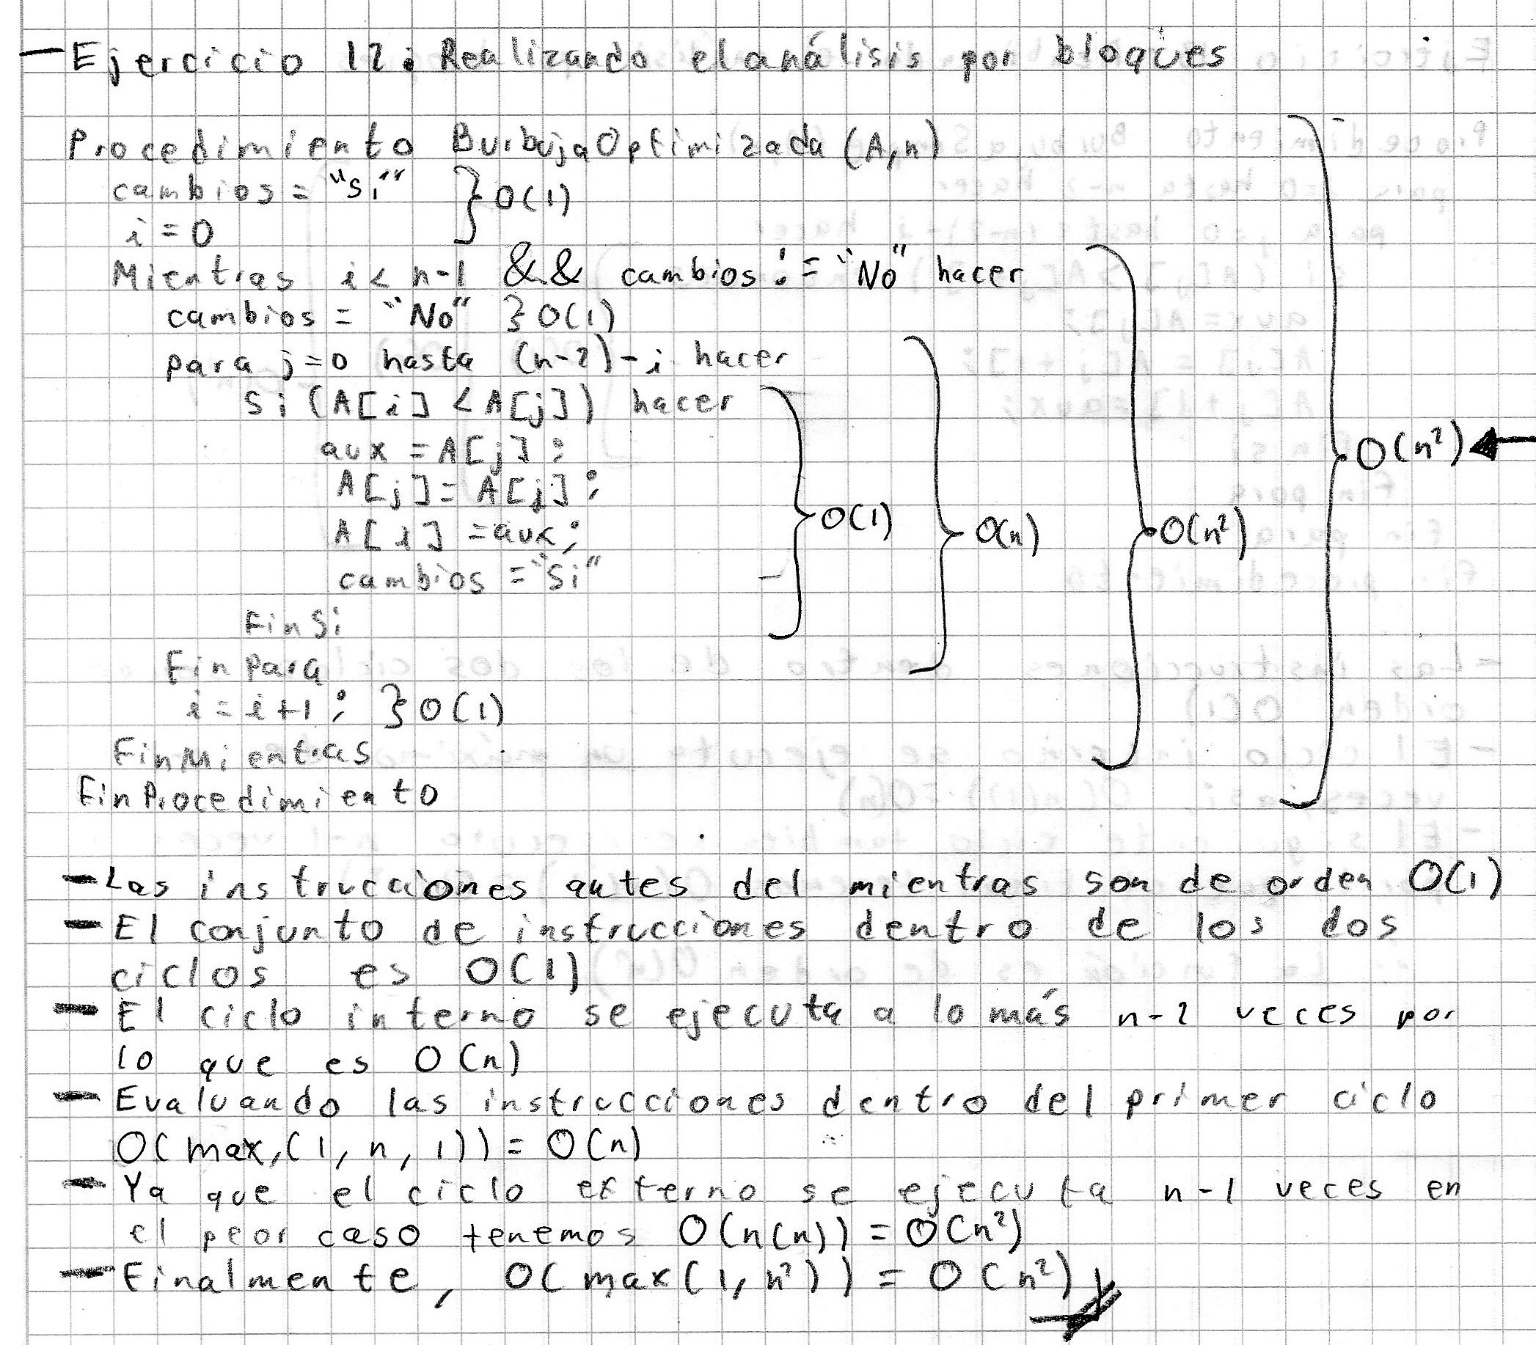 - Ejercicio 12: Realizando el análisis por bloques
Procedimiento BurbujaOptimizada (A,n)
cambios = "Si" } O(1)
i = 0
Mientras i < n-1 && cambios != "No" hacer
cambios = "No" } O(1)
para j=0 hasta (n-2)-i hacer
Si (A[i] < A[j]) hacer
aux = A[j];
A[j] = A[j];
A[i] = aux;
cambios = "Si"
O(1)
O(n)
O(n²)
O(n²)
FinSi
FinPara
i = i+1; } O(1)
FinMientras
FinProcedimiento
- Las instrucciones antes del mientras son de orden O(1)
- El conjunto de instrucciones dentro de los dos
ciclos es O(1)
- El ciclo interno se ejecuta a lo más n-2 veces por
lo que es O(n)
- Evaluando las instrucciones dentro del primer ciclo
O(max,(1, n, 1)) = O(n)
- Ya que el ciclo externo se ejecuta n-1 veces en
el peor caso tenemos O(n(n)) = O(n²)
- Finalmente, O(max(1, n²)) = O(n²)